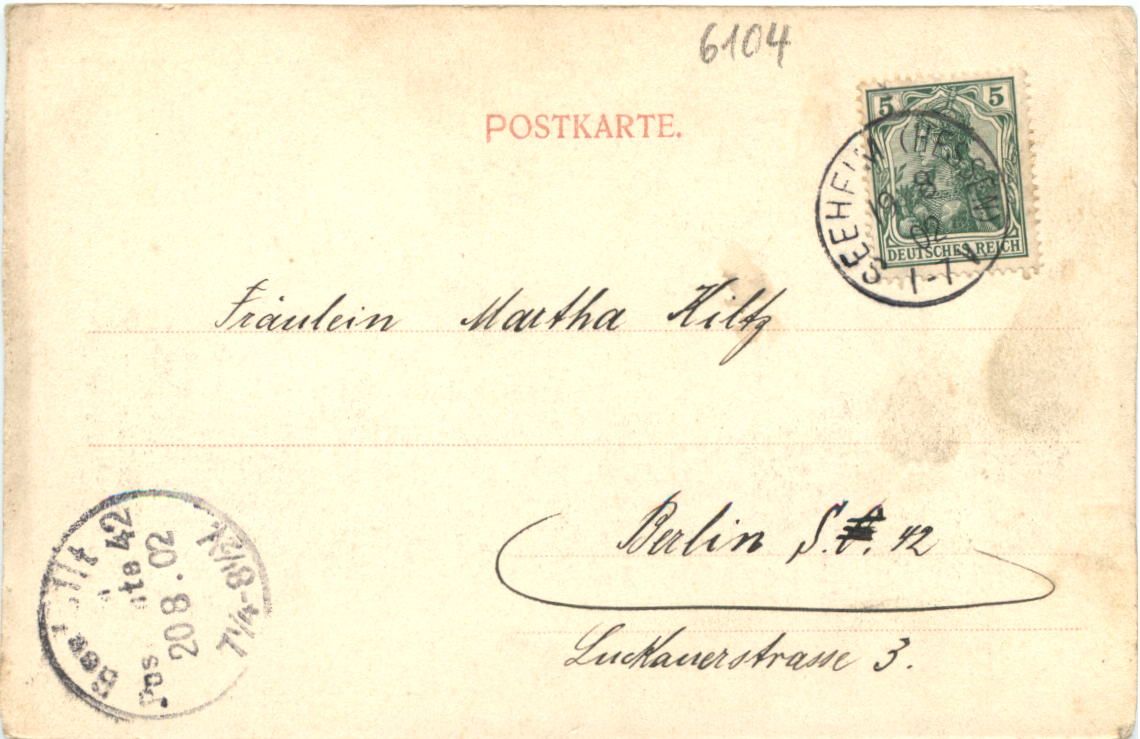 6104
POSTKARTE.
5 5
DEUTSCHES REICH
SEEHEIM (HESSEN)
19 8
02
1-7 N
Fräulein Martha Hiltz
Berlin S. 42
Luckauerstrasse 3.
Bestellt
42
20 8. 02
7¼-8½